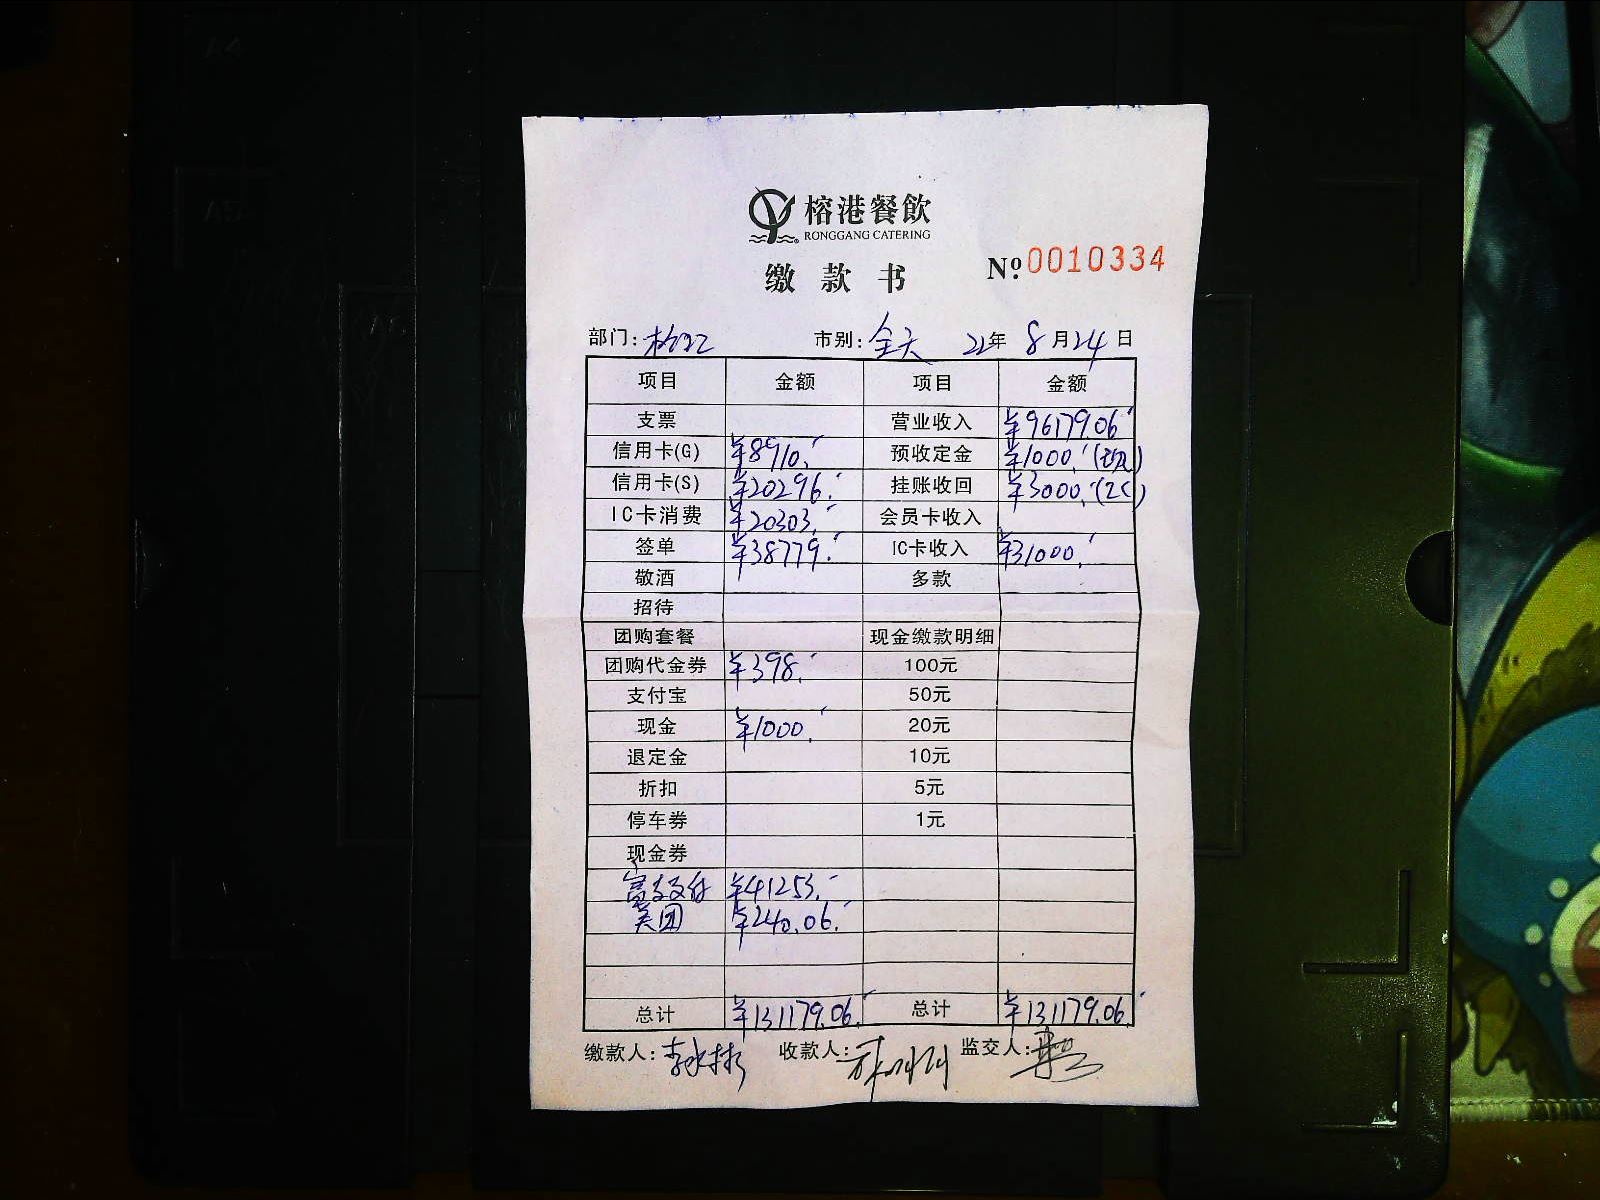 榕港餐飲
RONGGANG CATERING
缴款书
№ 0010334
部门: 市别: 全天 22年 8月24日
项目 金额 项目 金额
支票 营业收入 ¥96179.06
信用卡(G) ¥8910. 预收定金 ¥1000.(现)
信用卡(S) ¥20296. 挂账收回 ¥3000.
IC卡消费 ¥20303. 会员卡收入
签单 ¥38779. IC卡收入 ¥31000.
敬酒 多款
招待
团购套餐 现金缴款明细
团购代金券 ¥398. 100元
支付宝 50元
现金 ¥1000. 20元
退定金 10元
折扣 5元
停车券 1元
现金券
富友支付 ¥41253.
美团 ¥240.06.
总计 ¥131179.06. 总计 ¥131179.06.
缴款人: 收款人: 监交人:
A4
A5